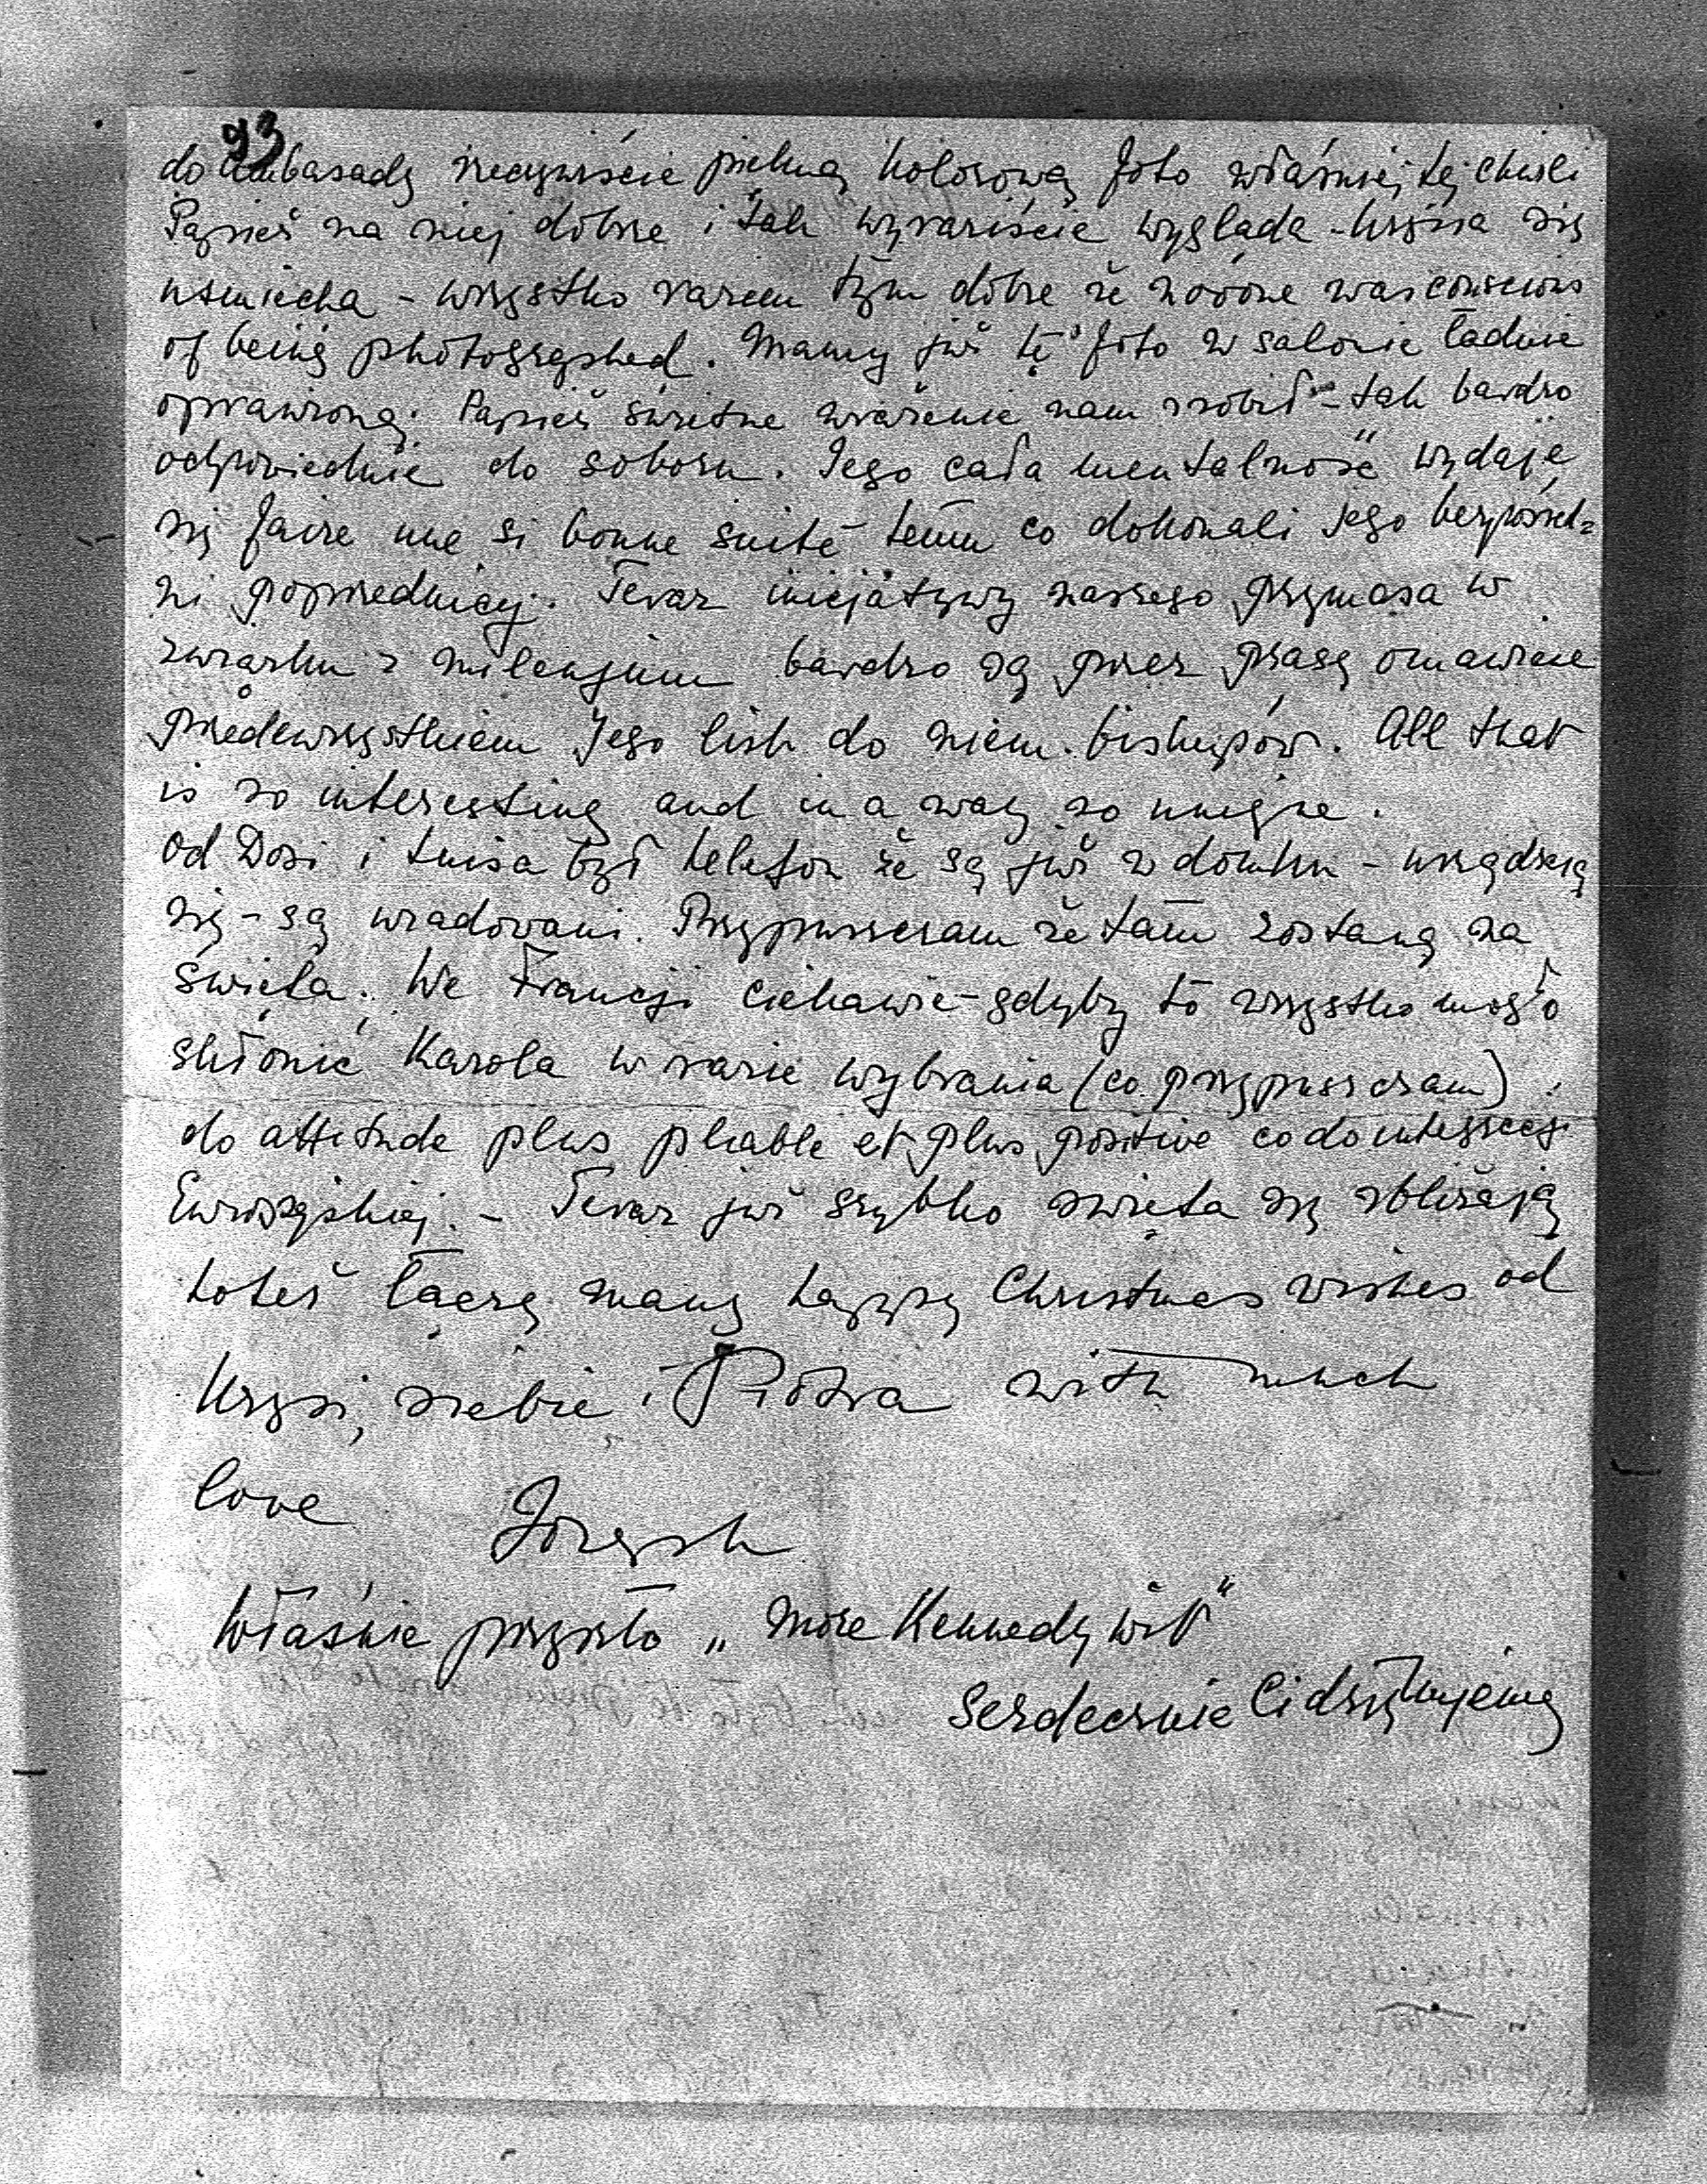 93
do Ambasady rzeczywiście piękną kolorową foto właśnie tej chwili
Papież na niej dobrze i tak wyraziście wygląda - Krysia się
uśmiecha - wszystko razem tym dobre że no one was conscious
of being photographed. Mamy już tę foto w salonie ładnie
oprawioną. Papież świetne wrażenie nam zrobił - tak bardzo
odpowiednie do soboru. Jego cała mentalność wydaje
się faire une si bonne suite temu co dokonali Jego bezpośred-
ni poprzednicy. Teraz inicjatywy naszego prymasa w
związku z milenjum bardzo są przez prasę omawiane
przedewszystkiem Jego list do niem. biskupów. All that
is so interesting and in a way so unique.
Od Dosi i Luisa był telefon że są już w domku - urządzają
się - są uradowani. Przypuszczam że tam zostaną na
święta. We Francji ciekawie - gdyby to wszystko mogło
skłonić Karola w razie wybrania (co przypuszczam)
do attitude plus pliable et plus positive co do integracji
Europejskiej. - Teraz już szybko święta się zbliżają
toteż łączę many happy Christmas wishes od
Krysi, siebie i Piotra with much
love Joseph
Właśnie przyszło „More Kennedy Wit"
Serdecznie Ci dziękujemy